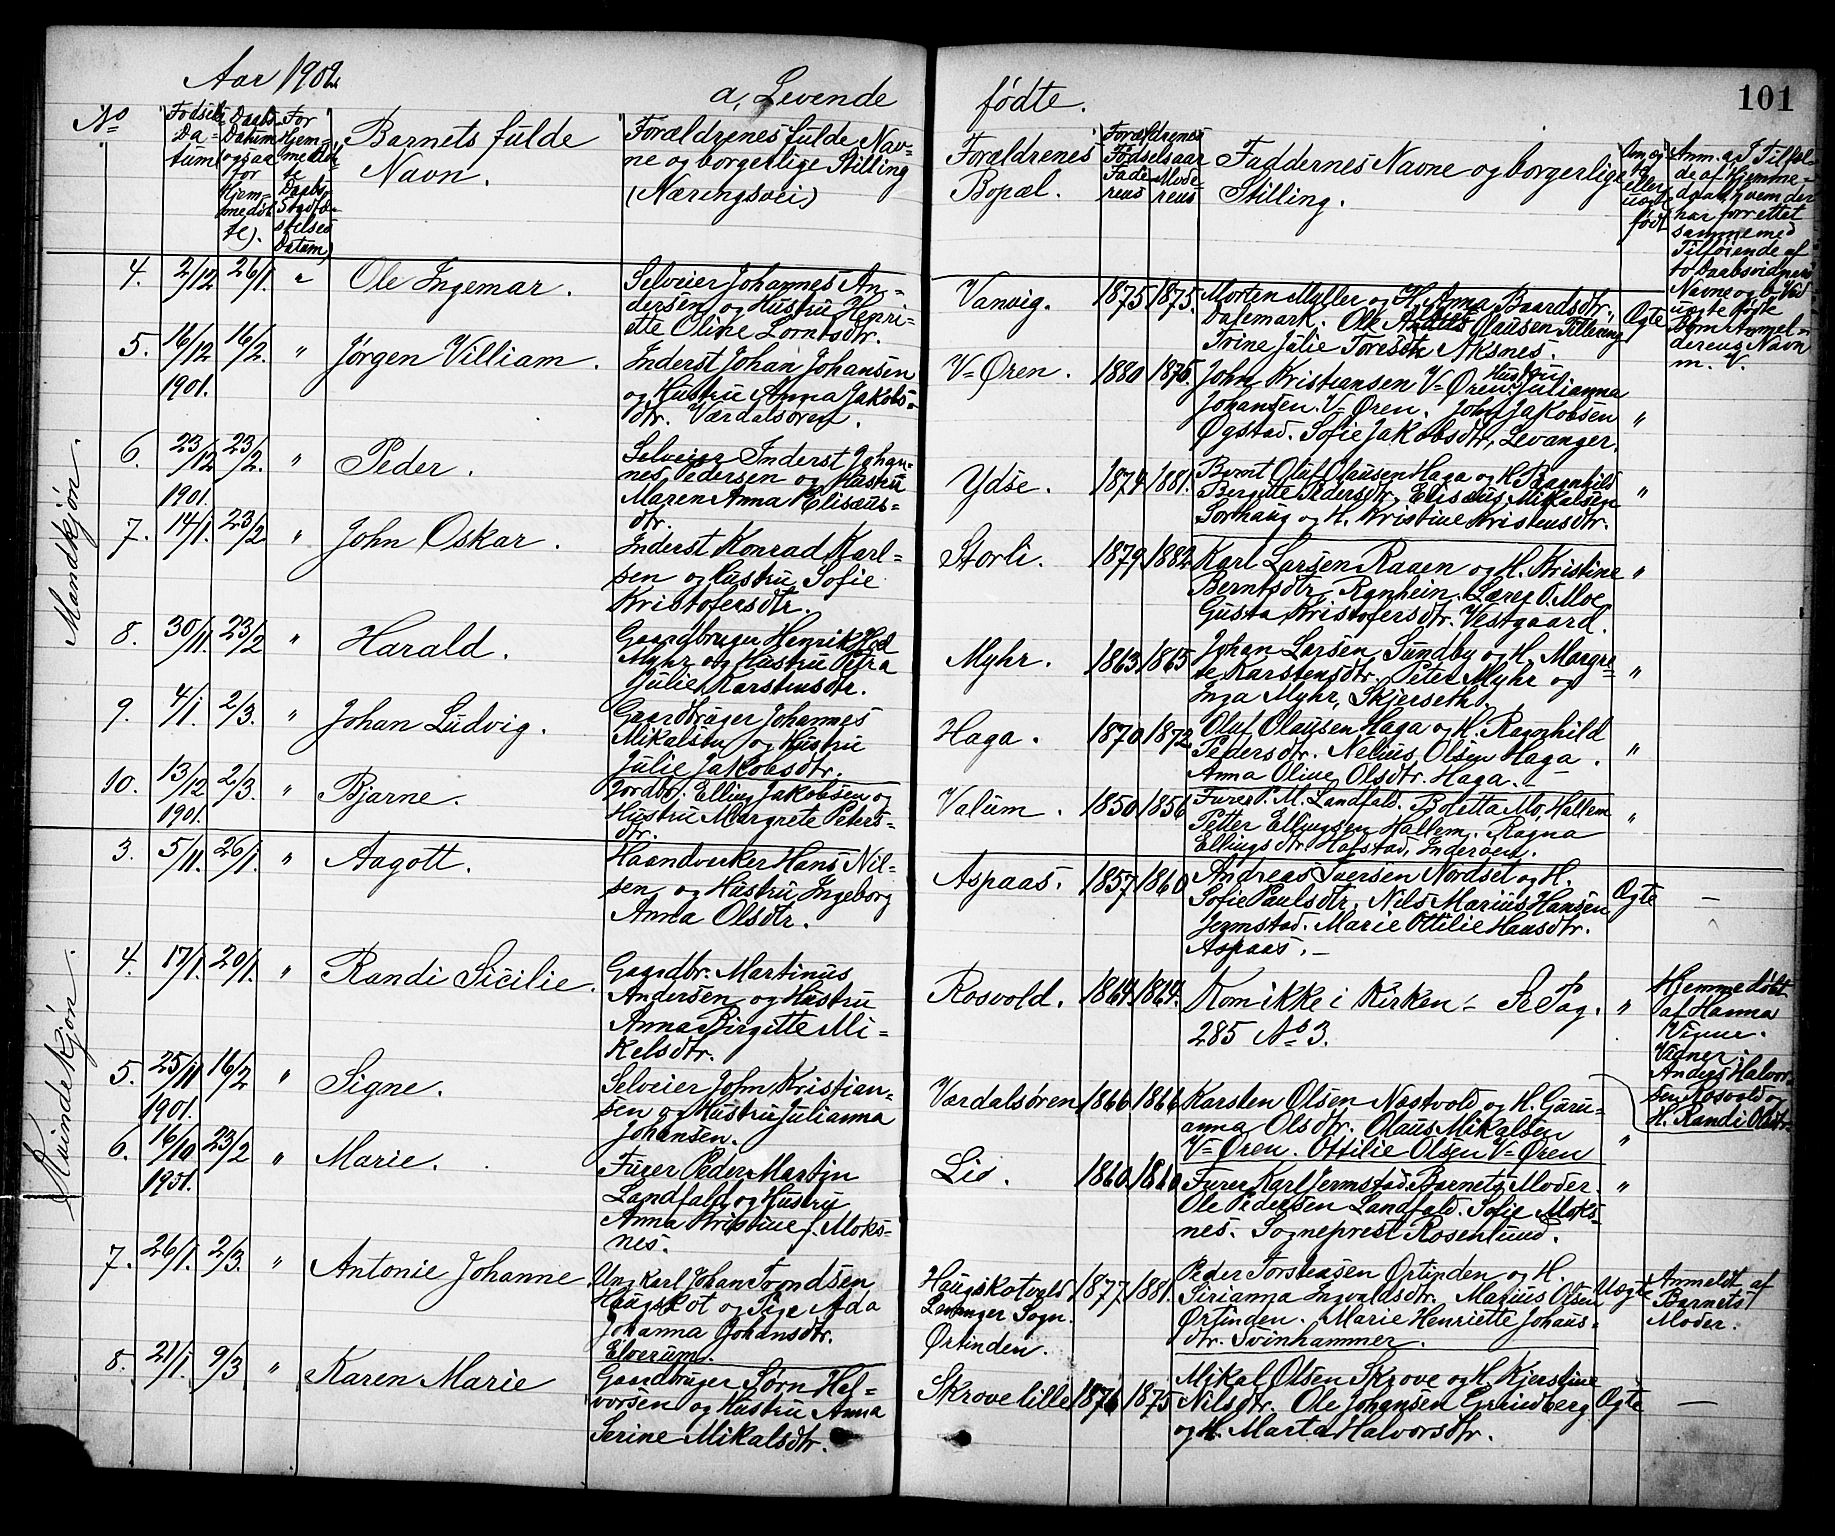 Aar 1902
a, Levende fødte.
101
No
Fødsels Da= tum
Daabs Datum ogsaa for Hjem= medøb te).
For Hjem= medøb te Daabs Stadfæ= stelses Datum)
Barnets fulde Navn.
Forældrenes fulde Nav= ne og borgerlige Stilling (Næringsvei)
Forældrenes Bopæl.
Forældrenes Fødselsaar
Fade= rens
Mode= rens
Faddernes Navne og borgerlige Stilling.
Om æg te eller uægt født
Anm. a, I Tilfæl= de af Hjemme= daab, hvem der har forrettet samme med Tilføiende af to Daabsvidners Navne og b, Ved uægte fødte Børn Anmel= derens Navn m. V.
Mandkjøn.
4. 2/12 26/1. " Ole Ingemar.
Selveier Johannes An=
dersen og Hustru Henri=
ette Oline Lorntsdtr.
Vanvig. 1875 1875.
Morten Myller og H. Anna Baardsdtr.,
Dalemark. Ole Olausen Tillering
Trine Julie Toresdtr Aksnes.
Ægte
5. 16/12 1901. 16/2. " Jørgen Villiam.
Inderst Johan Johansen
og Hustru Anna Jakobs=
dtr. Værdalsøren.
V=Øren. 1880 1875.
John Kristiansen V=Øren. Hustru Julianna
Johansen. V=Øren. John Jakobsen
Øgstad. Sofie Jakobsdtr. Levanger.
"
6. 23/12 1901. 23/2. " Peder.
Selveier Inderst Johan=
nes Pedersen og Hustru
Maren Anna Elisæus=
dtr.
Ydse. 1874 1881.
Bernt Oluf Olausen Haga og H. Ragnhild
Bergitte Pedersdtr. Elisæus Mikalsen
Sorthaug og H. Kristine Kristensdtr.
"
7. 14/1. 23/2 " John Oskar.
Inderst Konrad Karl=
sen og Hustru Sofie
Kristofersdtr.
Storli. 1879 1882
Karl Larsen Raaen og H. Kristine
Berntsdtr. Rynhein. Lærer O. Moe
Gusta Kristofersdtr. Vestgaard.
"
8. 30/11. 23/2 " Harald.
Gaardbruger Henrik Hed
Myhr og Hustru Petra
Julie Karstensdtr.
Myhr. 1863 1865
Johan Larsen Sundby og H. Margre=
te Karstensdtr. Peter Myhr og
Inga Myhr, Skjerseth.
"
9. 4/1. 2/3. " Johan Ludvig.
Gaardbruger Johannes
Mikalsen og Hustru
Julie Jakobsdtr.
Haga. 1870 1872
Oluf Olausen Haga og H. Ragnhild
Pedersdtr. Nelius Olsen Haga.
Anna Oline Olsdtr. Haga.
"
10. 13/12 1901. 2/3. " Bjarne.
Jordbr. Elling Jakobsen og
Hustru Margrete Peters=
dtr.
Valum. 1850 1856
Furer P. M. Landfald. Boletta Mo, Hallem
Petter Ellingsen Hallem. Ragna
Ellingsdtr. Hofstad, Inderøen.
"
Kvindekjøn.
3. 5/11. 26/1. " Aagott.
Haandverker Hans Nil=
sen og Hustru Ingeborg
Anna Olsdtr.
Aspaas. 1857 1860
Andreas Iversen Nordset og H.
Sofie Paulsdtr. Nils Marius Hansen
Jermstad. Marie Ottilie Hansdtr.
Aspaas. –
Ægte –
4. 17/1. 20/1. " Randi Sicilie.
Gaardbr. Martinus
Andersen og Hustru
Anna Birgitte Mi=
kelsdtr.
Rosvold. 1864 1864.
Kom ikke i Kirken! Se Pag.
285 No 3.
"
Hjemmedøbt
af Hanna
Vinne.
Vidner.
Anders Halvor=
sen Rosvold og
H. Randi Olsdtr.
5. 25/11 1901. 16/2 " Signe.
Selveier John Kristian=
sen og Hustru Julianna
Johansen.
Værdalsøren 1866 1866
Karsten Olsen Næstvold og H. Guru=
anna Olsdtr. Olaus Mikalsen
V=Øren. Ottilie Olsen V=Øren
"
6. 16/10 1901. 23/2 " Marie.
Furer Peder Martin
Landfald og Hustru
Anna Kristine f. Moks=
nes.
Lid. 1860. 1860
Furer Karl Jermstad. Barnets Moder.
Ole Pedersen Landfald. Sofie Moks=
nes. Sogneprest Rosenlund.
"
7. 26/1. 2/3. " Antonie Johanne.
Ung Karl Johan Trondsen
Haugskot og Pige Ada
Johanna Johansdtr.
Elverum.
Haugskotvald
Levanger Sogn.
Ørtinden.
1877. 1881.
Peder Torstensen Ørtinden og H.
Sirianna Ingvaldsdtr. Marius Olsen
Ørtinden. Marie Henriette Johans=
dtr. Svinhammer.
Uægte
Anmeldt af
Barnets
Moder.
8. 21/1. 9/3 " Karen Marie
Gaardbruger Sørn Hal=
vorsen og Hustru Anna
Serine Mikalsdtr.
Skrove lille 1876 1875
Mikal Olsen Skrove og H. Kjerstine
Nilsdtr. Ole Johansen Grundberg
og H. Marta Halvorsdtr.
Ægte –